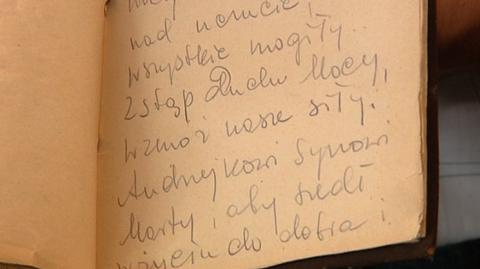 nad
wszystkie mogiły..
Zstąp Duchu Mocy,
wzmóż nasze siły.
Andrzejkowi Synowi
Marty, aby szedł
w życiu do dobra i